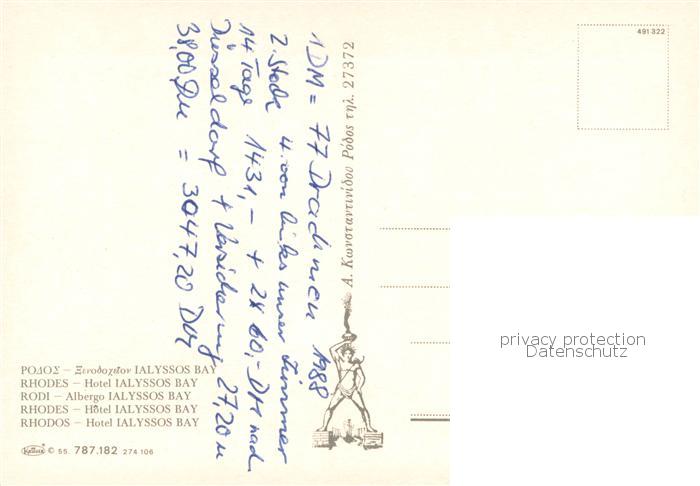 491 322
1 DM = 77 Drachmen 1988
2. Stock 4. von links unser Zimmer
14 Tage 1431,- + 2x 60,- DM nach
Düsseldorf + Versicherung 27,20 u
38,00 DM = 3047,20 DM
Α. Κωνσταντινίδου Ρόδος τηλ. 27372
privacy protection
Datenschutz
ΡΟΔΟΣ – Ξενοδοχεῖον IALYSSOS BAY
RHODES – Hotel IALYSSOS BAY
RODI – Albergo IALYSSOS BAY
RHODES – Hôtel IALYSSOS BAY
RHODOS – Hotel IALYSSOS BAY
© 55. 787.182 274 106